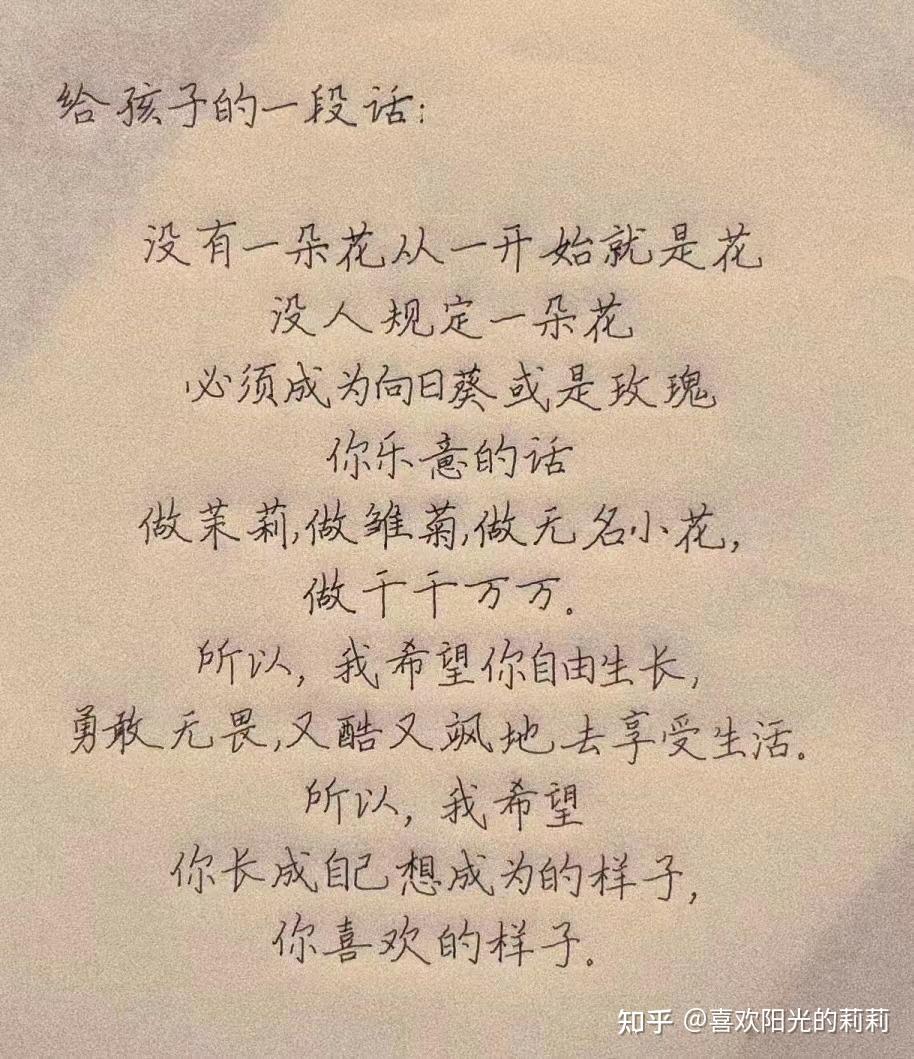 给孩子的一段话:
没有一朵花从一开始就是花
没人规定一朵花
必须成为向日葵或是玫瑰
你乐意的话
做茉莉,做雏菊,做无名小花,
做千千万万。
所以，我希望你自由生长,
勇敢无畏,又酷又飒地去享受生活。
所以，我希望
你长成自己想成为的样子,
你喜欢的样子。
知乎 @喜欢阳光的莉莉